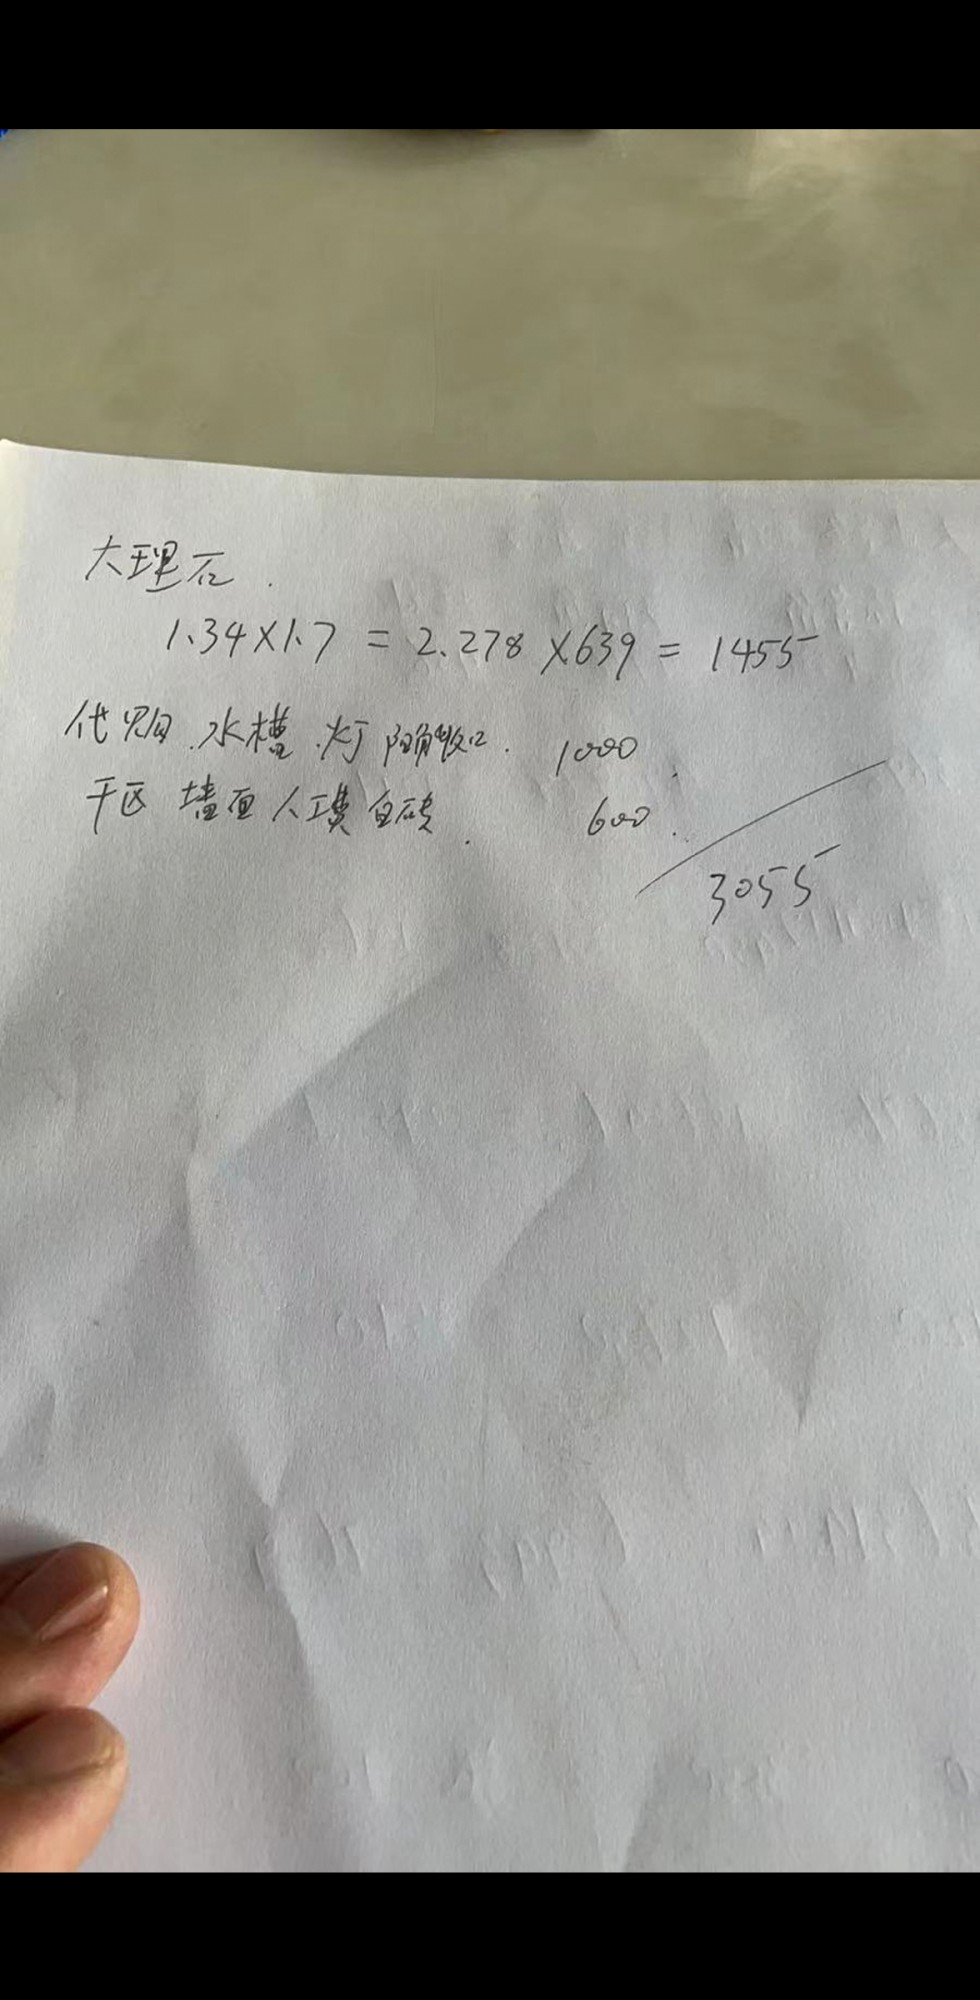 大理石.
1.34×1.7=2.278×639=1455
代购.水槽.灯 阴角收口. 1000.
干区 墙面人工费 白砖. 600.
3055